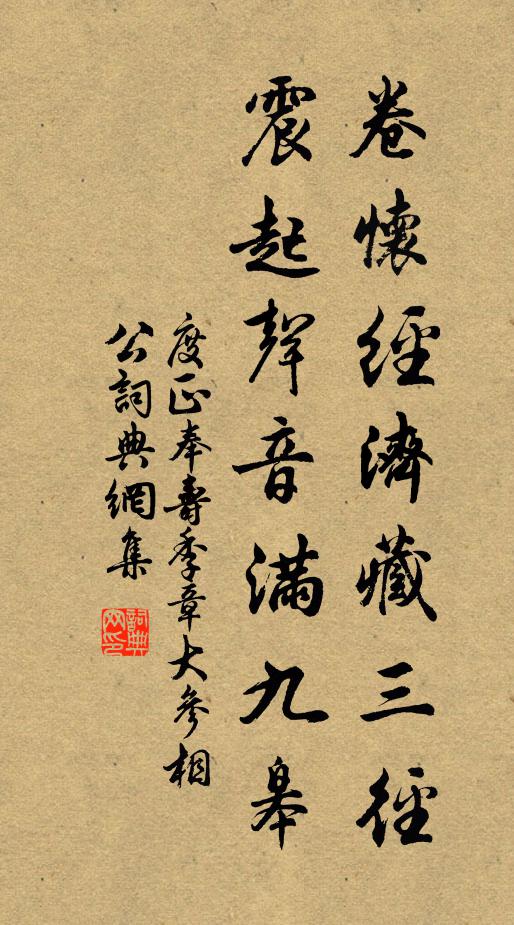 卷懷經濟藏三徑
震起聲音滿九皋
度正奉壽季章大參相
公詞典網集
詞典网印